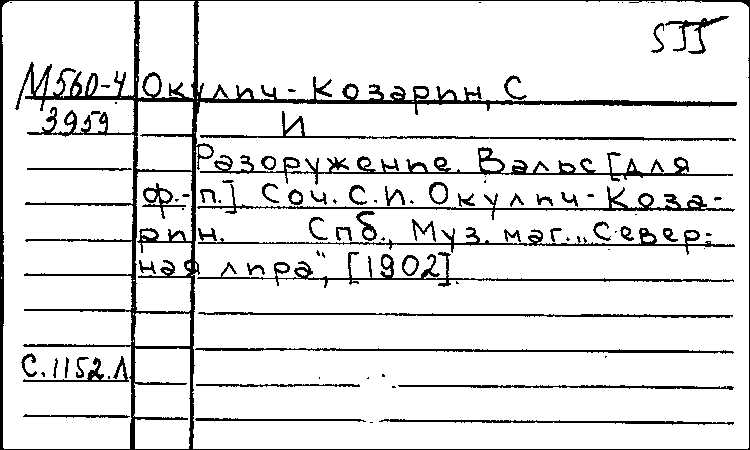 М560-4 Окулич-Козарин, С
3959 И
Разоружение. Вальс [для
ф.-п.]. Соч. С.И. Окулич-Коза-
рин. Спб., Муз. маг. „Север-
ная лира", [1902].
С.1152.Л